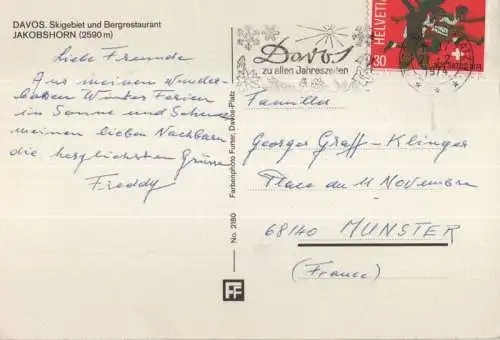 DAVOS. Skigebiet und Bergrestaurant
JAKOBSHORN (2590 m)
Liebe Freunde
Aus meinen wunder-
baren Winter Ferien
in Sonne und Schnee
meinen lieben Nachbarn
die herzlichsten Grüsse
Freddy
No. 2180 Farbenphoto Furter, Davos-Platz
FF
Davos
zu allen Jahreszeiten
HELVETIA
30
1974
Familie
Georges Graff-Klinger
Place du 11 Novembre
68140 MUNSTER
(France)